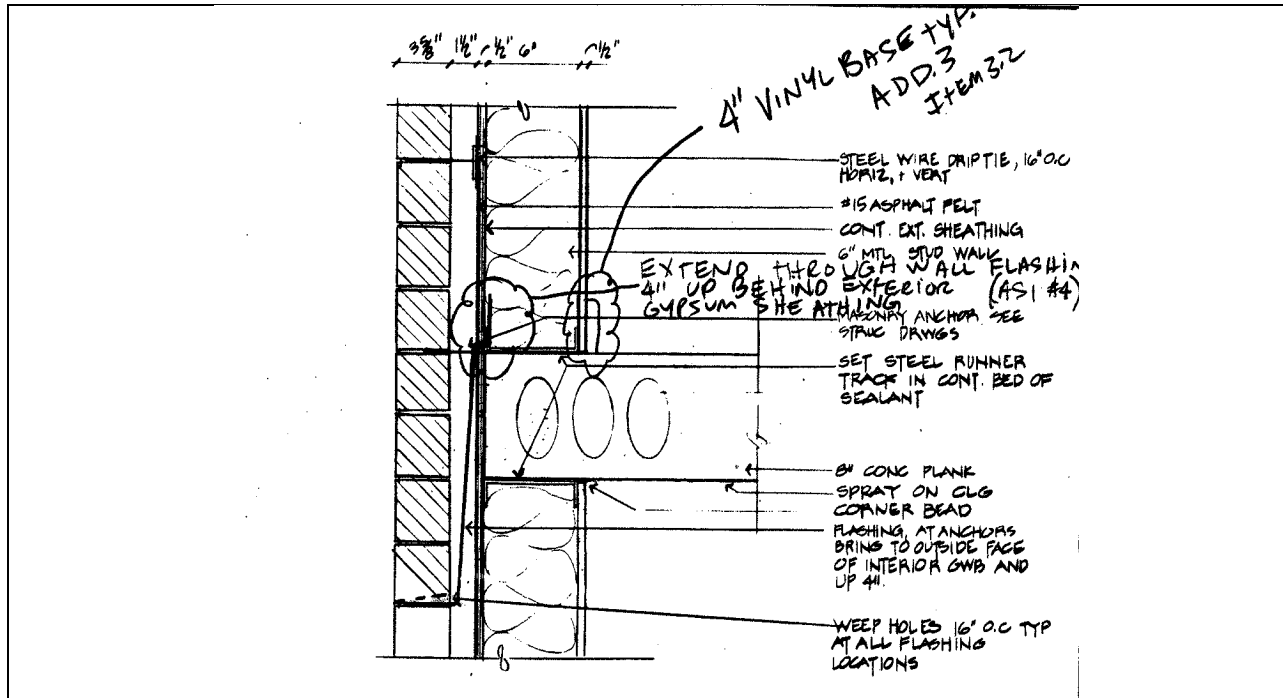 3⅝" 1½" ½" 6" ½"
4" VINYL BASE TYP.
ADD.3
ITEM 3.2
STEEL WIRE DRIP TIE, 16" O.C
HORIZ, + VERT
#15 ASPHALT FELT
CONT. EXT. SHEATHING
6" MTL STUD WALL
EXTEND THROUGH WALL FLASHIN
4" UP BEHIND EXTERIOR (ASI #4)
GYPSUM SHEATHING
MASONRY ANCHOR SEE
STRUC DRWGS
SET STEEL RUNNER
TRACK IN CONT. BED OF
SEALANT
8" CONC PLANK
SPRAY ON CLG
CORNER BEAD
FLASHING, AT ANCHORS
BRING TO OUTSIDE FACE
OF INTERIOR GWB AND
UP 4".
WEEP HOLES 16" O.C TYP
AT ALL FLASHING
LOCATIONS